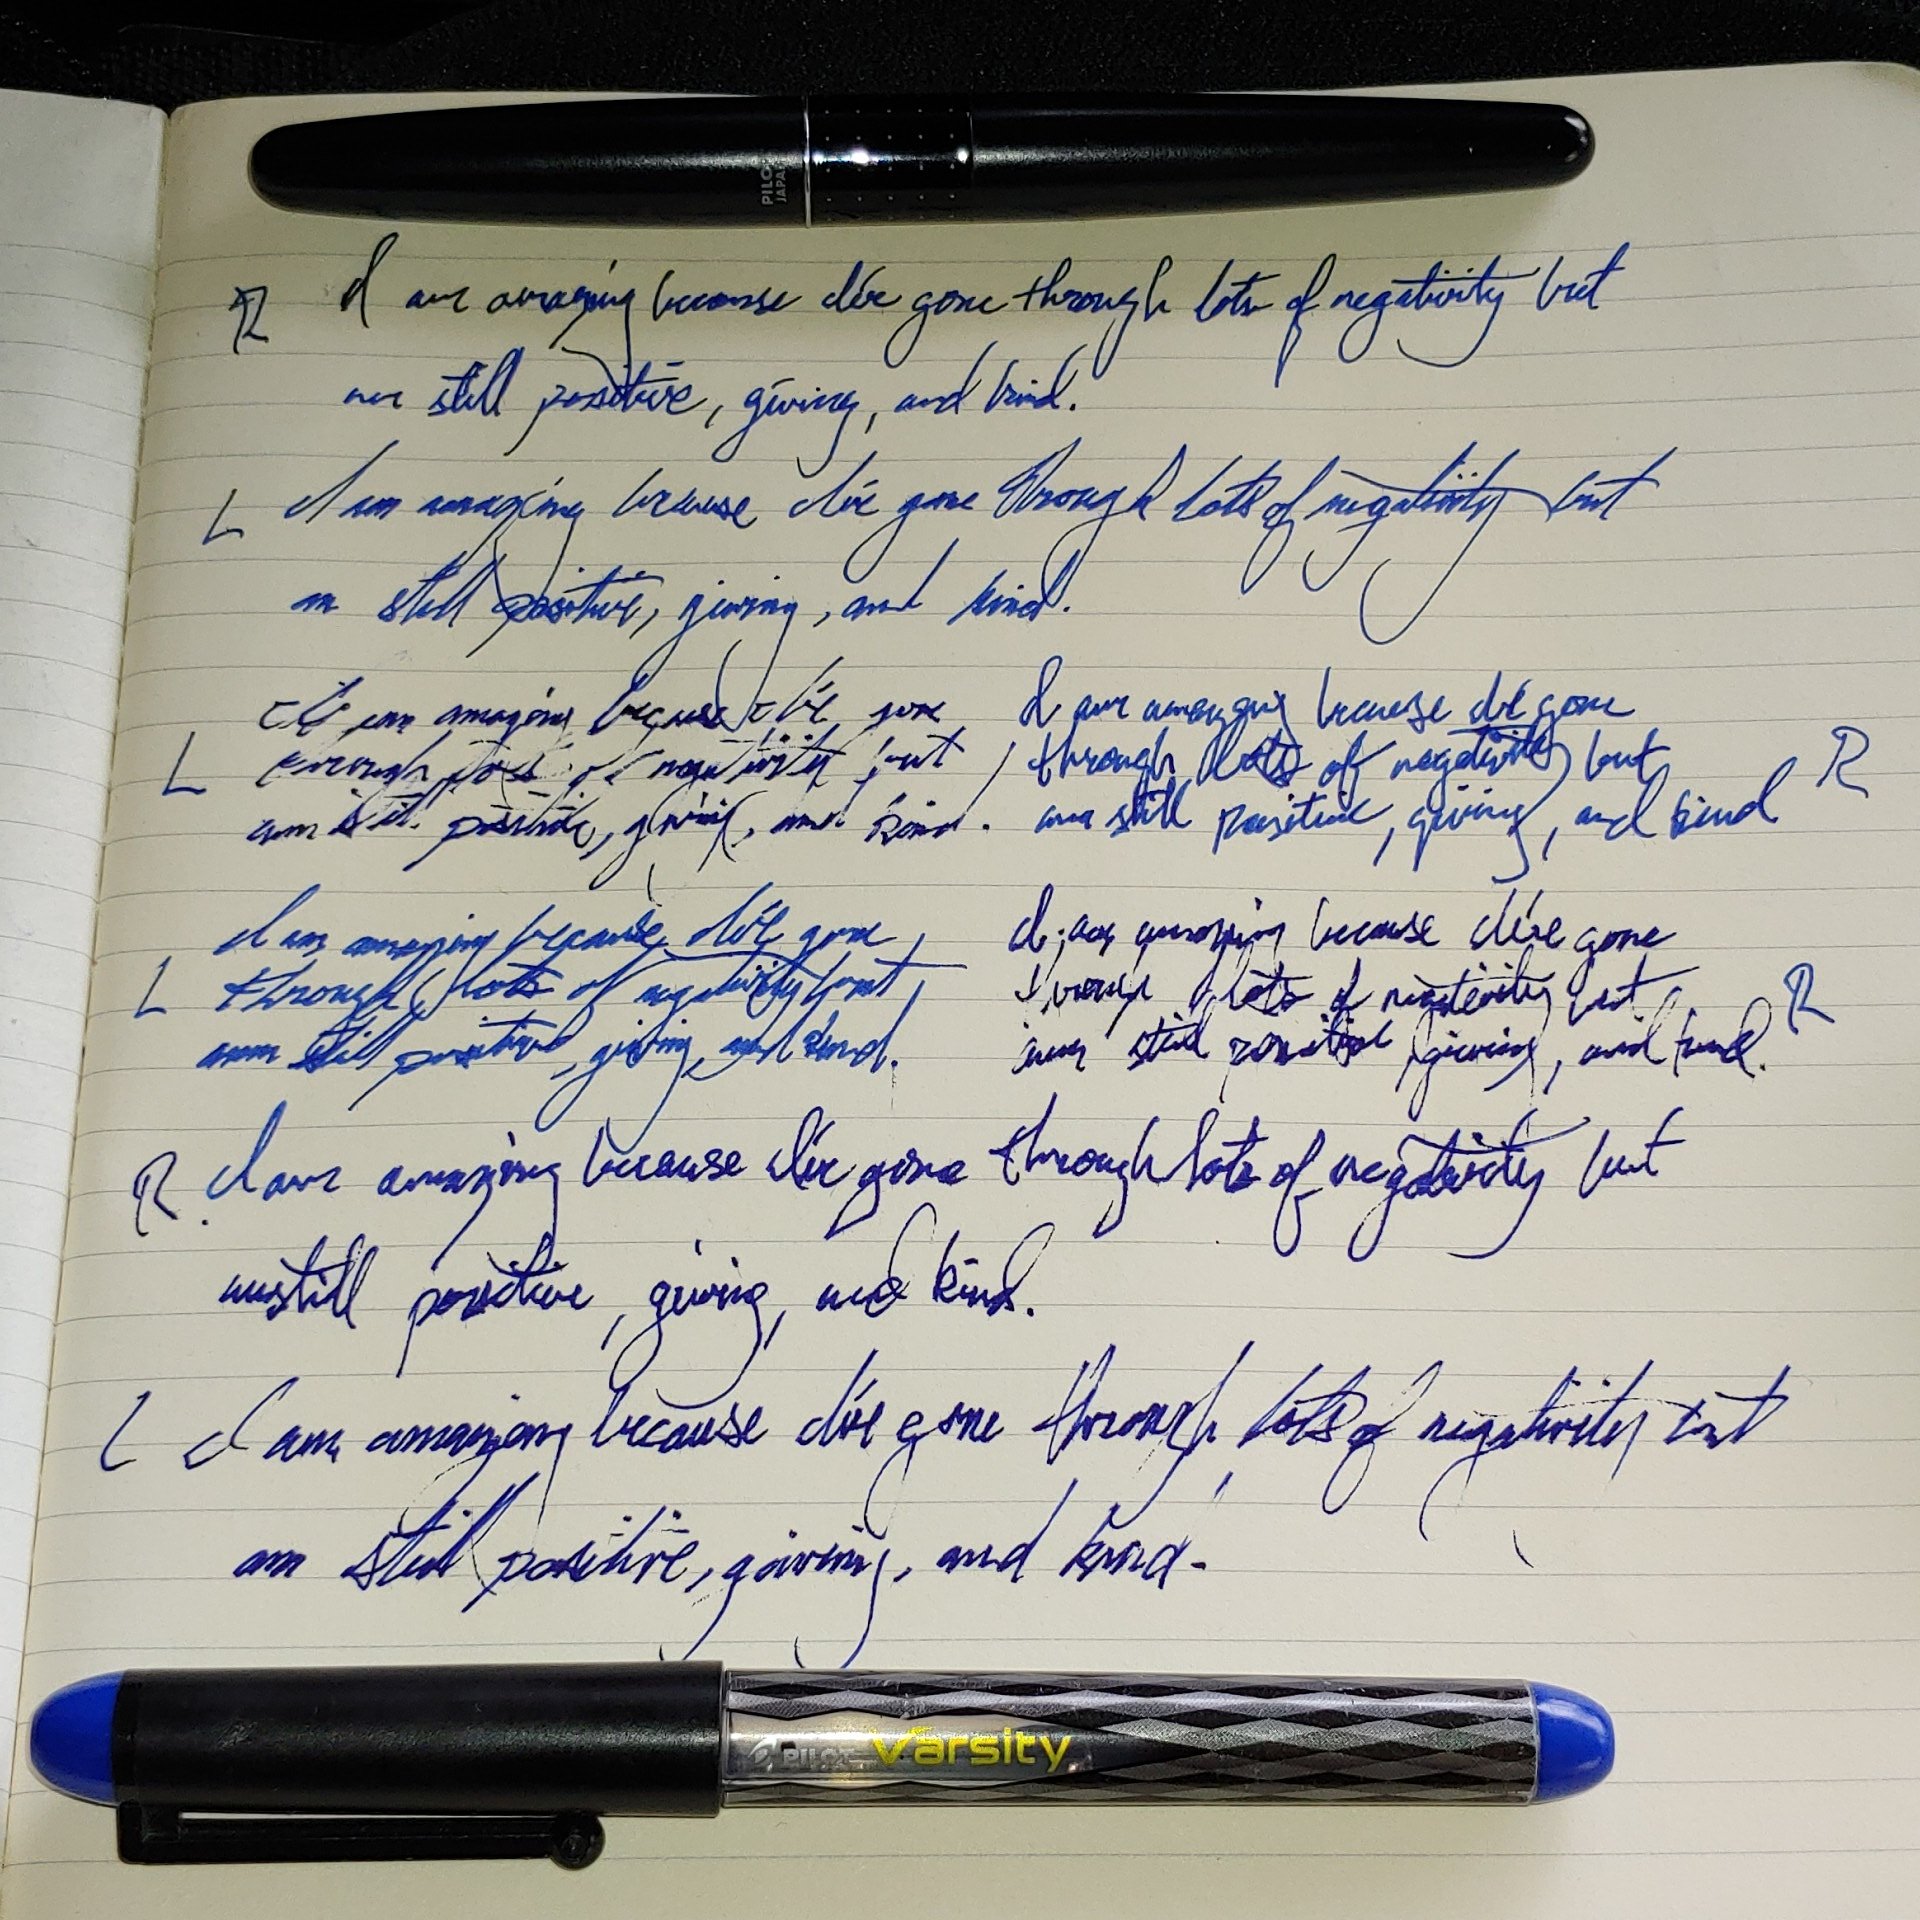 PILOT
JAPAN
R I am amazing because I've gone through lots of negativity but
am still positive, giving, and kind.
L I am amazing because I've gone through lots of negativity but
am still positive, giving, and kind.
I am amazing because I've gone
L through lots of negativity but
am still positive, giving, and kind.
I am amazing because I've gone
through lots of negativity but R
am still positive, giving, and kind
I am amazing because I've gone
L through lots of negativity but
am still positive, giving, and kind.
I am amazing because I've gone
through lots of negativity but R
am still positive, giving, and kind.
R I am amazing because I've gone through lots of negativity but
am still positive, giving, and kind.
L I am amazing because I've gone through lots of negativity but
am still positive, giving, and kind.
PILOT Varsity